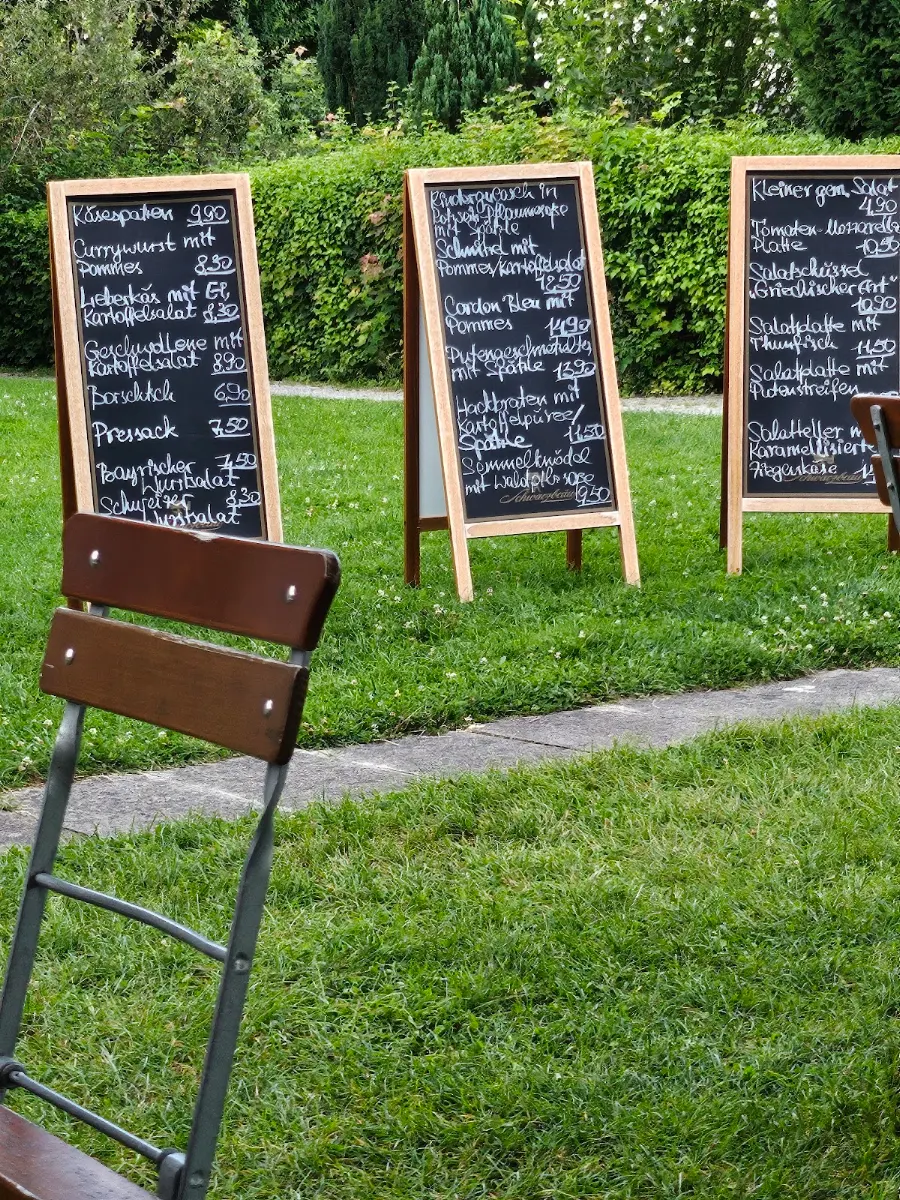 Käsespatzen 9,90
Currywurst mit
Pommes 8,30
Leberkäs mit Ei,
Kartoffelsalat 8,30
Geschwollene mit
Kartoffelsalat 8,90
Borschtch 6,90
Pressack 7,50
Bayrischer 7,50
Wurtsalat
Schweizer 8,30
Wurtsalat
in
mit Spätzle
Schnitzel mit
Pommes/Kartoffelsalat
12,50
Cordon Bleu mit
Pommes 14,90
Putengeschnetzeltes
mit Spätzle 13,90
Hackbraten mit
Kartoffelpüree/
Spätzle 11,50
Semmelknödel
mit Waldpilzsoße
Schwarzbräu 9,50
Kleiner gem. Salat
4,90
Tomaten-Mozzarella
Platte 10,50
Salatschüssel
„Griechischer Art"
10,90
Salatplatte mit
Thunfisch 11,50
Salatplatte mit
Putenstreifen
Salatteller mit
Karamellisierte
Ziegenkäse
Schwarzbräu